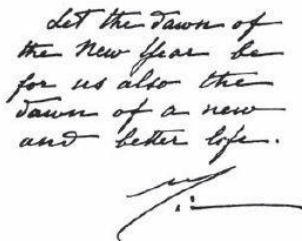 Let the dawn of
the New Year be
for us also the
dawn of a new
and better life.